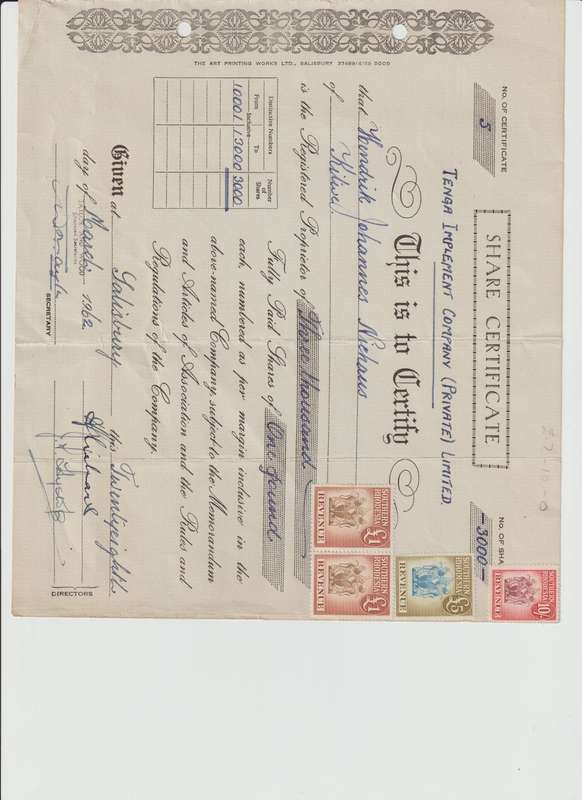 No. OF CERTIFICATE
5
SHARE CERTIFICATE
No. OF SHA
-3000-
£7-10-0
TENGA IMPLEMENT COMPANY (PRIVATE) LIMITED.
This is to Certify
that Hendrik Johannes Niehaus
of Kitwe
is the Registered Proprietor of Three thousand
Fully Paid Shares of One pound
each, numbered as per margin inclusive in the
above-named Company, subject to the Memorandum
and Articles of Association and the Rules and
Regulations of the Company.
Distinctive Numbers
Number of Shares
From —Inclusive— To
10001 13000 3000
Given at Salisbury this Twentyeighth
day of March 1962
SECRETARY
DIRECTORS
SOUTHERN RHODESIA
10/-
REVENUE
SOUTHERN RHODESIA
£5
REVENUE
SOUTHERN RHODESIA
£1
REVENUE
SOUTHERN RHODESIA
£1
REVENUE
THE ART PRINTING WORKS LTD., SALISBURY